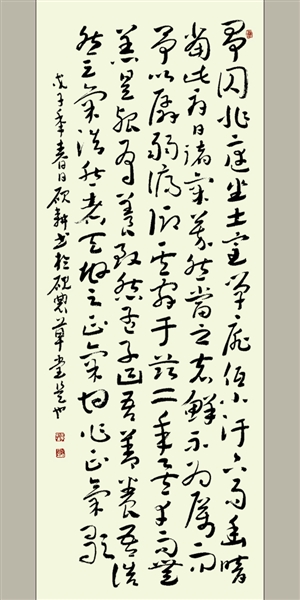 予囚北庭坐土室單扉低小汙下而幽暗
當此夏日諸氣萃然當之者鮮不為厲而
予以孱弱俯仰其間于茲二年矣幸而無
恙是殆有養致然孟子曰吾善養吾浩
然之氣浩然者天地之正氣也作正氣歌
戊子年春日硯耕書於硯農草堂